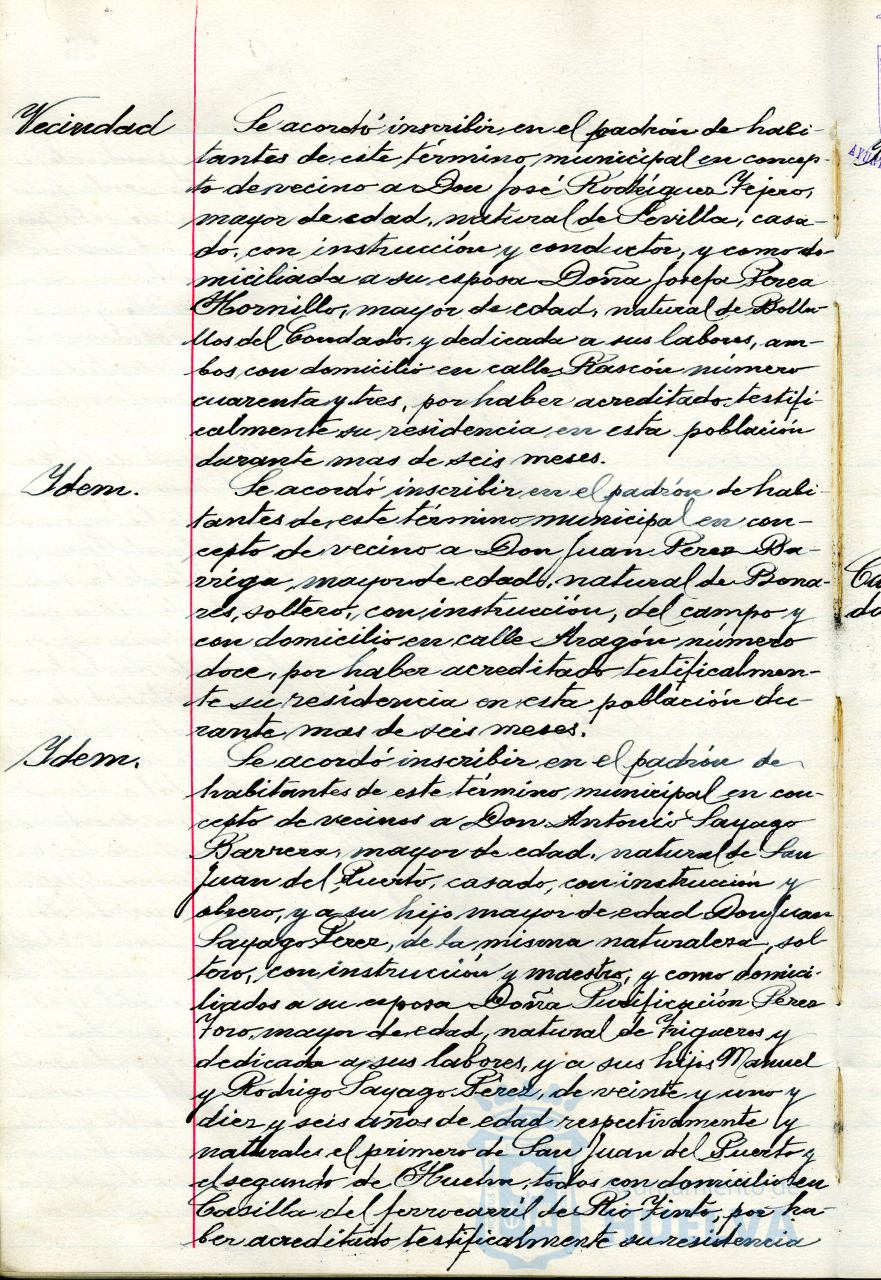 Vecindad
Se acordó inscribir en el padrón de habi-
tantes de este término municipal en concep-
to de vecino a Don José Rodríguez Tejero,
mayor de edad, natural de Sevilla, casa-
do, con instrucción y conductor, y como do-
miciliada a su esposa Doña Josefa Perea
Hornillo, mayor de edad, natural de Bollu-
llos del Condado, y dedicada a sus labores, am-
bos con domicilio en calle Rascón número
cuarenta y tres, por haber acreditado testifi-
calmente su residencia en esta población
durante mas de seis meses.
Ydem.
Se acordó inscribir en el padrón de habi-
tantes de este término municipal en con-
cepto de vecino a Don Juan Perez Ba-
rriga, mayor de edad, natural de Bona-
res, soltero, con instrucción, del campo y
con domicilio en calle Aragón número
doce, por haber acreditado testificalmen-
te su residencia en esta población du-
rante mas de seis meses.
Ydem.
Se acordó inscribir en el padrón de
habitantes de este término municipal en con-
cepto de vecinos a Don Antonio Sayago
Barrera, mayor de edad, natural de San
Juan del Puerto, casado, con instrucción y
obrero, y a su hijo mayor de edad Don Juan
Sayago Pérez, de la misma naturaleza, sol-
tero, con instrucción y maestro, y como domici-
liados a su esposa Doña Purificación Pérez
Toro, mayor de edad, natural de Trigueros y
dedicada a sus labores, y a sus hijos Manuel
y Rodrigo Sayago Pérez, de veinte y uno y
diez y seis años de edad respectivamente y
naturales el primero de San Juan del Puerto y
el segundo de Huelva, todos con domicilio en
Casilla del ferrocarril de Rio Tinto, por ha-
ber acreditado testificalmente su residencia
Ayuntamiento de
HUELVA